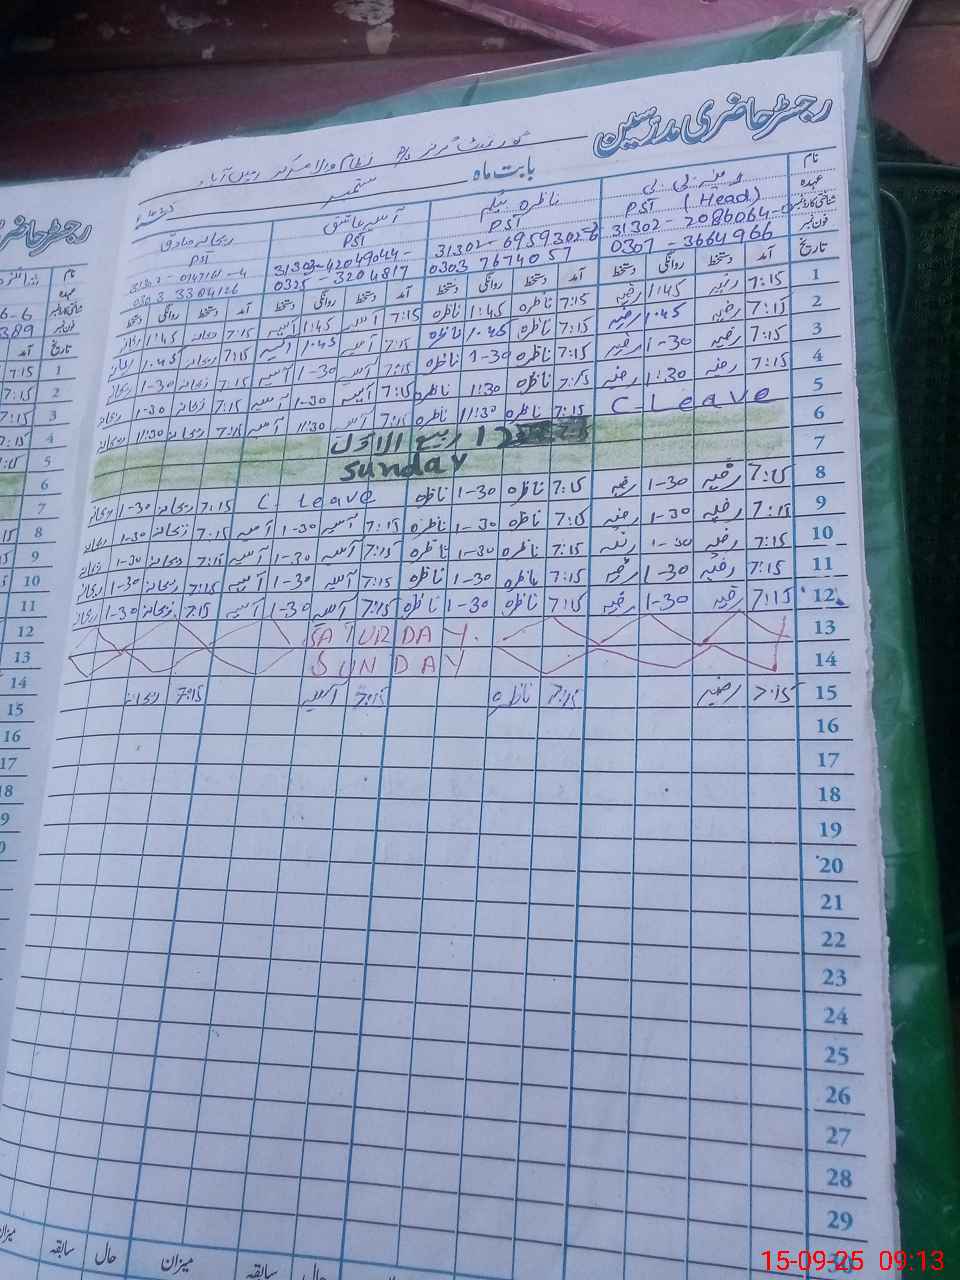 رجسٹر حاضری مدرسین
بابت ماہ ستمبر
نام رضیہ بی بی ناظرہ بیگم آسیہ عاشق ریحانہ صادق
عہدہ PST (Head) PST PST PST
شناختی کارڈ نمبر 31302-2086064-0 31302-6959302-6 31303-4204904-
فون نمبر 0307-3664966 0303 7674057 0325-3204817 0303 3304126
تاریخ آمد دستخط روانگی دستخط آمد دستخط روانگی دستخط آمد دستخط روانگی دستخط آمد دستخط روانگی دستخط
1 7:15 رضیہ 1:45 رضیہ 7:15 ناظرہ 1:45 ناظرہ 7:15 آسیہ 1:45 آسیہ 7:15 ریحانہ 1:45 ریحانہ
2 7:15 رضیہ 1.45 رضیہ 7:15 ناظرہ 1.45 ناظرہ 7:15 آسیہ 1.45 آسیہ 7:15 ریحانہ 1.45 ریحانہ
3 7:15 رضیہ 1-30 رضیہ 7:15 ناظرہ 1-30 ناظرہ 7:15 آسیہ 1-30 آسیہ 7:15 ریحانہ 1-30 ریحانہ
4 7:15 رضیہ 1:30 رضیہ 7:15 ناظرہ 11:30 ناظرہ 7:15 آسیہ 1-30 آسیہ 7:15 ریحانہ 1-30 ریحانہ
5 C-Leave 7:15 ناظرہ 11:30 ناظرہ 7:15 آسیہ 11:30 آسیہ 7:15 ریحانہ 11:30 ریحانہ
6 12 ربیع الاول
7 Sunday
8 7:15 رضیہ 1-30 رضیہ 7:15 ناظرہ 1-30 ناظرہ C. Leave 7:15 ریحانہ 1-30 ریحانہ
9 7:15 رضیہ 1-30 رضیہ 7:15 ناظرہ 1-30 ناظرہ 7:15 آسیہ 1-30 آسیہ 7:15 ریحانہ 1-30 ریحانہ
10 7:15 رضیہ 1-30 رضیہ 7:15 ناظرہ 1-30 ناظرہ 7:15 آسیہ 1-30 آسیہ 7:15 ریحانہ 1-30 ریحانہ
11 7:15 رضیہ 1-30 رضیہ 7:15 ناظرہ 1-30 ناظرہ 7:15 آسیہ 1-30 آسیہ 7:15 ریحانہ 1-30 ریحانہ
12 7:15 رضیہ 1-30 رضیہ 7:15 ناظرہ 1-30 ناظرہ 7:15 آسیہ 1-30 آسیہ 7:15 ریحانہ 1-30 ریحانہ
13 SATURDAY.
14 SUNDAY
15 7:15 رضیہ 7:15 ناظرہ 7:15 آسیہ 7:15 ریحانہ
16
17
18
19
20
21
22
23
24
25
26
27
28
29
30
سابقہ میزان حال سابقہ
رجسٹر حاضر
نام
عہدہ
6-6
389
تاریخ آمد
1 7:15
2 7:15
3 7:15
4 7:15
5
6
7
8
9
10
11
12
13
14
15
16
17
18
15-09-25 09:13